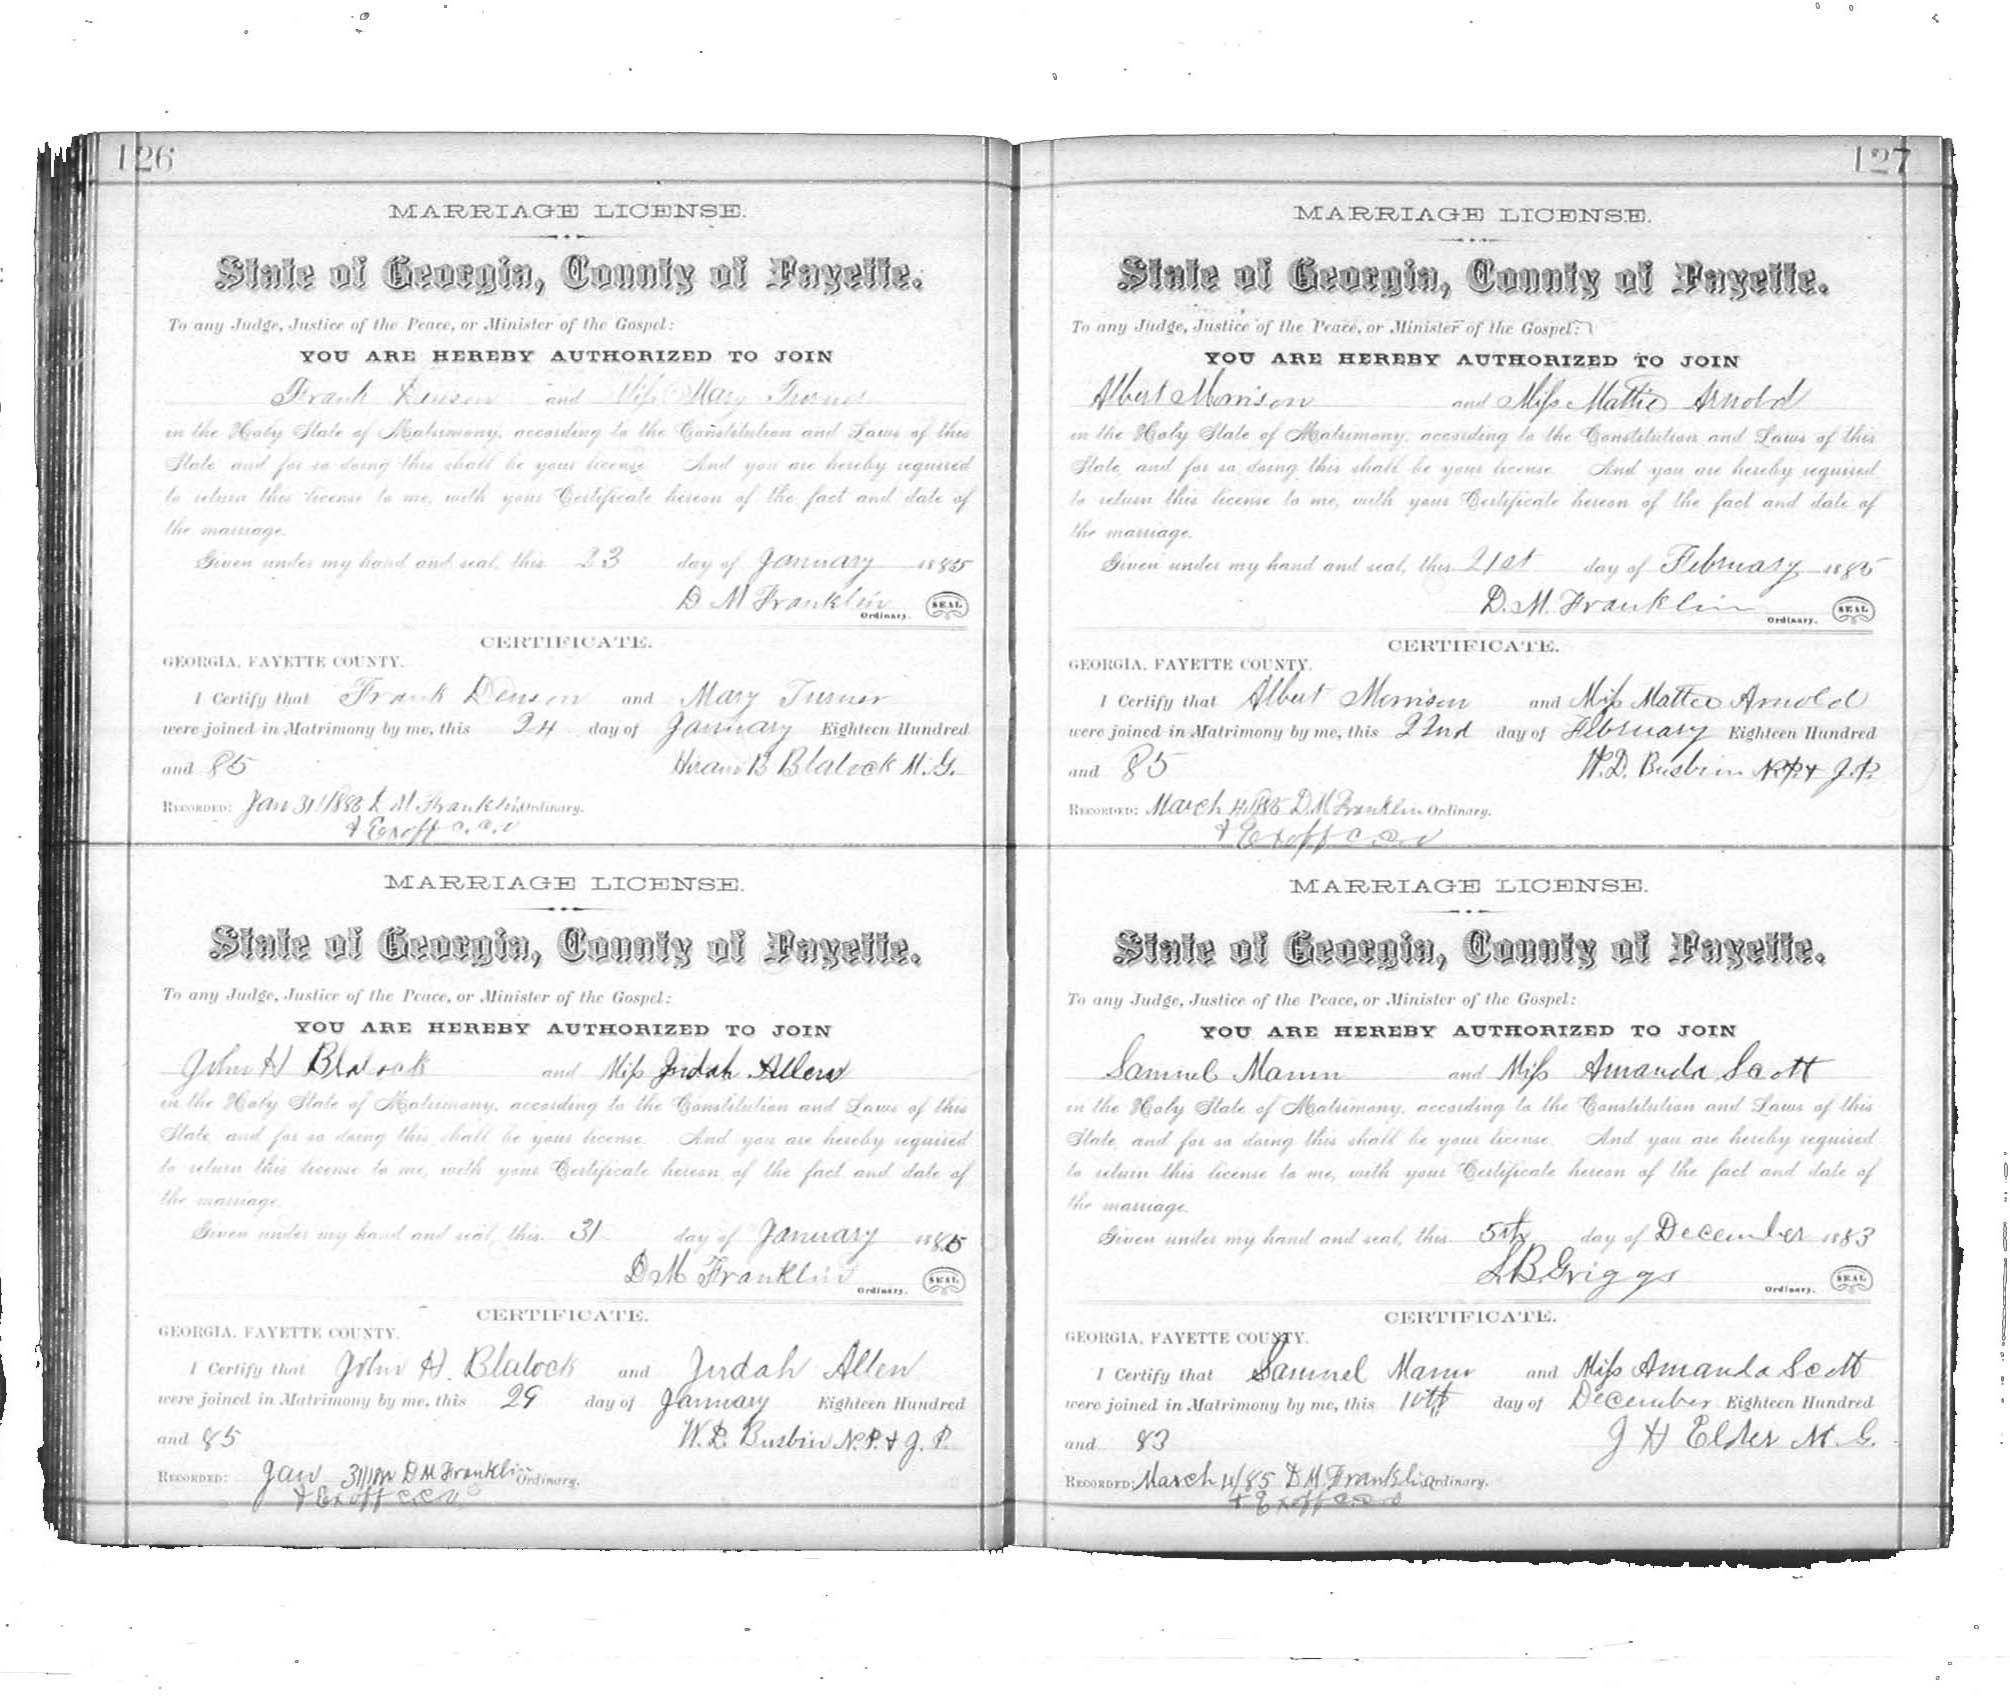 126
MARRIAGE LICENSE.
State of Georgia, County of Fayette.
To any Judge, Justice of the Peace, or Minister of the Gospel:
YOU ARE HEREBY AUTHORIZED TO JOIN
Frank Denson and Miss Mary Turner
in the Holy State of Matrimony, according to the Constitution and Laws of this
State, and for so doing this shall be your license. And you are hereby required
to return this license to me, with your Certificate hereon of the fact and date of
the marriage.
Given under my hand and seal, this 23 day of January 1885
D M Franklin
Ordinary. SEAL
CERTIFICATE.
GEORGIA, FAYETTE COUNTY.
I Certify that Frank Denson and Mary Turner
were joined in Matrimony by me, this 24 day of January Eighteen Hundred
and 85 Hiram B Blalock M. G.
RECORDED: Jan 31 D M Franklin Ordinary.
& Exoff c.c.o
MARRIAGE LICENSE.
State of Georgia, County of Fayette.
To any Judge, Justice of the Peace, or Minister of the Gospel:
YOU ARE HEREBY AUTHORIZED TO JOIN
John H Blalock and Miss Judah Allen
in the Holy State of Matrimony, according to the Constitution and Laws of this
State, and for so doing this shall be your license. And you are hereby required
to return this license to me, with your Certificate hereon of the fact and date of
the marriage.
Given under my hand and seal, this 31 day of January 1885
D M Franklin
Ordinary. SEAL
CERTIFICATE.
GEORGIA, FAYETTE COUNTY.
I Certify that John H. Blalock and Judah Allen
were joined in Matrimony by me, this 29 day of January Eighteen Hundred
and 85 W. D. Busbin N.P. & J. P.
RECORDED: Jan 31 D M Franklin Ordinary.
& Exoff c.c.o
127
MARRIAGE LICENSE.
State of Georgia, County of Fayette.
To any Judge, Justice of the Peace, or Minister of the Gospel:
YOU ARE HEREBY AUTHORIZED TO JOIN
Albert Morrison and Miss Mattie Arnold
in the Holy State of Matrimony, according to the Constitution and Laws of this
State, and for so doing this shall be your license. And you are hereby required
to return this license to me, with your Certificate hereon of the fact and date of
the marriage.
Given under my hand and seal, this 21st day of February 1885
D. M. Franklin
Ordinary. SEAL
CERTIFICATE.
GEORGIA, FAYETTE COUNTY.
I Certify that Albert Morrison and Miss Mattie Arnold
were joined in Matrimony by me, this 22nd day of February Eighteen Hundred
and 85 W. D. Busbin N.P. & J. P.
RECORDED: March 4 D. M. Franklin Ordinary.
& Exoff c.c.o
MARRIAGE LICENSE.
State of Georgia, County of Fayette.
To any Judge, Justice of the Peace, or Minister of the Gospel:
YOU ARE HEREBY AUTHORIZED TO JOIN
Samuel Mann and Miss Amanda Scott
in the Holy State of Matrimony, according to the Constitution and Laws of this
State, and for so doing this shall be your license. And you are hereby required
to return this license to me, with your Certificate hereon of the fact and date of
the marriage.
Given under my hand and seal, this 5th day of December 1883
L. B. Griggs
Ordinary. SEAL
CERTIFICATE.
GEORGIA, FAYETTE COUNTY.
I Certify that Samuel Mann and Miss Amanda Scott
were joined in Matrimony by me, this 10th day of December Eighteen Hundred
and 83 J H Elder M. G.
RECORDED: March 4/85 D M Franklin Ordinary.
& Exoff c.c.o